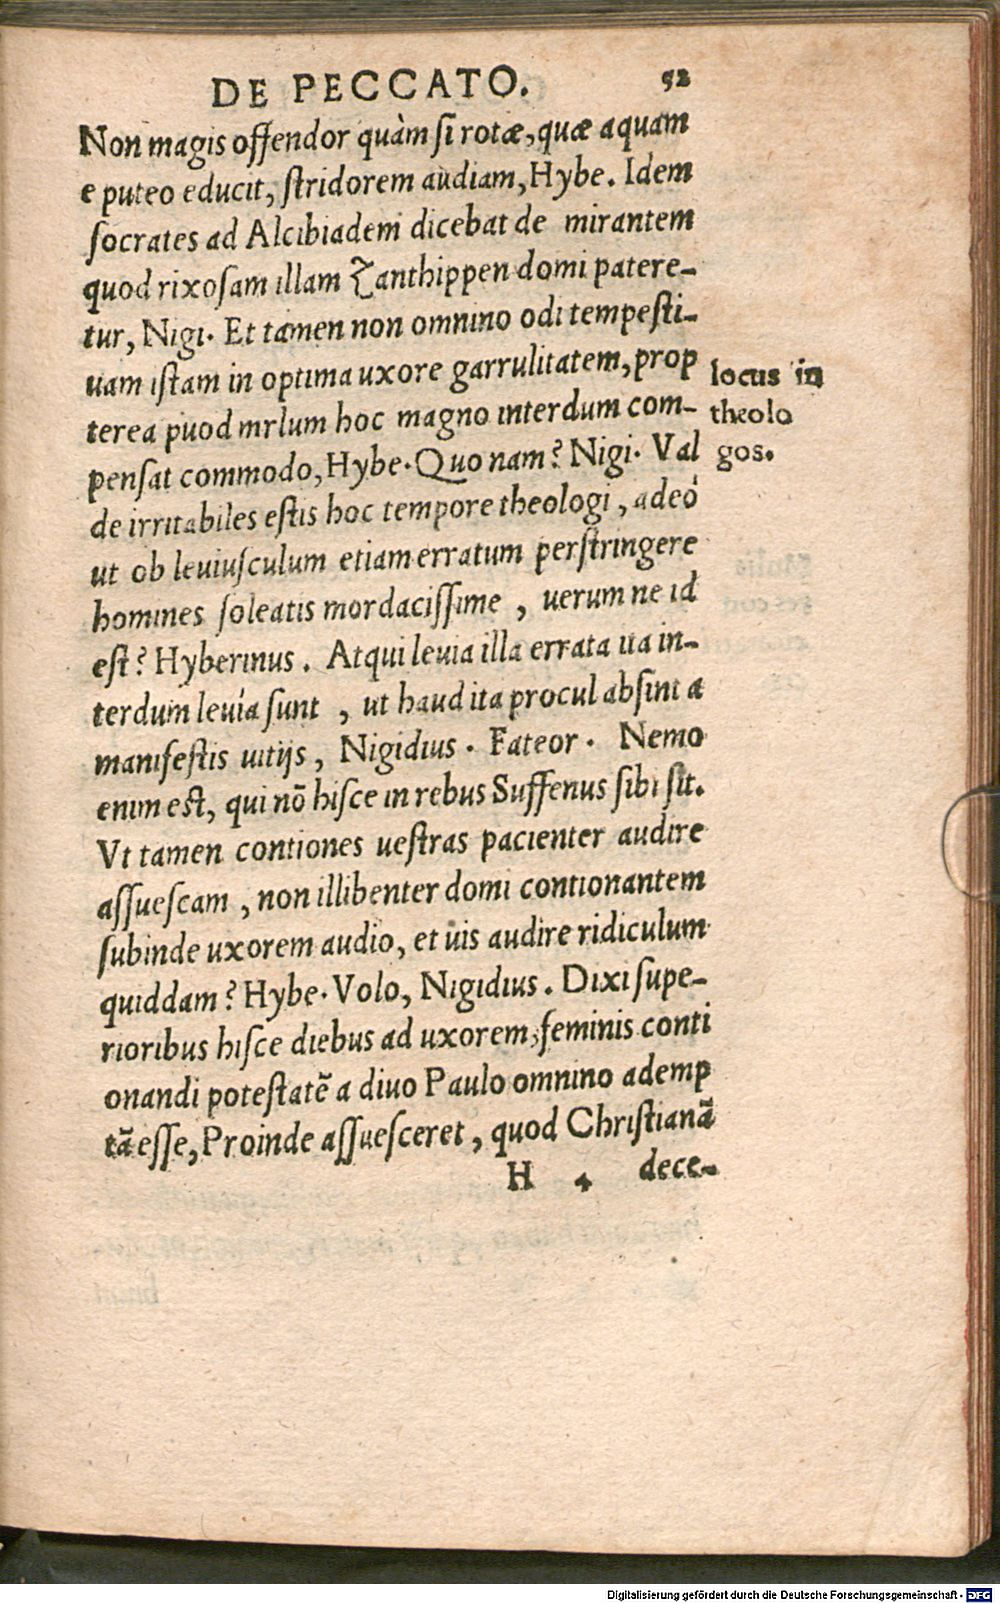 DE PECCATO. 52
Non magis offendor quàm ſi rotæ, quæ aquam
e puteo educit, ſtridorem audiam, Hybe. Idem
ſocrates ad Alcibiadem dicebat de mirantem
quod rixoſam illam Zanthippen domi patere-
tur, Nigi. Et tamen non omnino odi tempeſti-
uam iſtam in optima uxore garrulitatem, prop
terea puod mrlum hoc magno interdum com-
penſat commodo, Hybe. Quo nam? Nigi. Val
de irritabiles eſtis hoc tempore theologi, adeò
ut ob leuiuſculum etiam erratum perſtringere
homines ſoleatis mordaciſſime, uerum ne id
eſt? Hyberinus. Atqui leuia illa errata ita in-
terdum leuia ſunt, ut haud ita procul abſint a
manifeſtis uitijs, Nigidius. Fateor. Nemo
enim eſt, qui nō hiſce in rebus Suffenus ſibi ſit.
Vt tamen contiones ueſtras pacienter audire
aſſueſcam, non illibenter domi contionantem
ſubinde uxorem audio, et uis audire ridiculum
quiddam? Hybe. Volo, Nigidius. Dixi ſupe-
rioribus hiſce diebus ad uxorem, feminis conti
onandi poteſtatē a diuo Paulo omnino ademp
tā eſſe, Proinde aſſueſceret, quod Chriſtianā
H 4 dece-
locus in
theolo
gos.
Digitalisierung gefördert durch die Deutsche Forschungsgemeinschaft - DFG